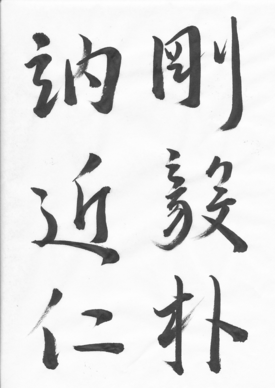 剛毅朴
訥近仁